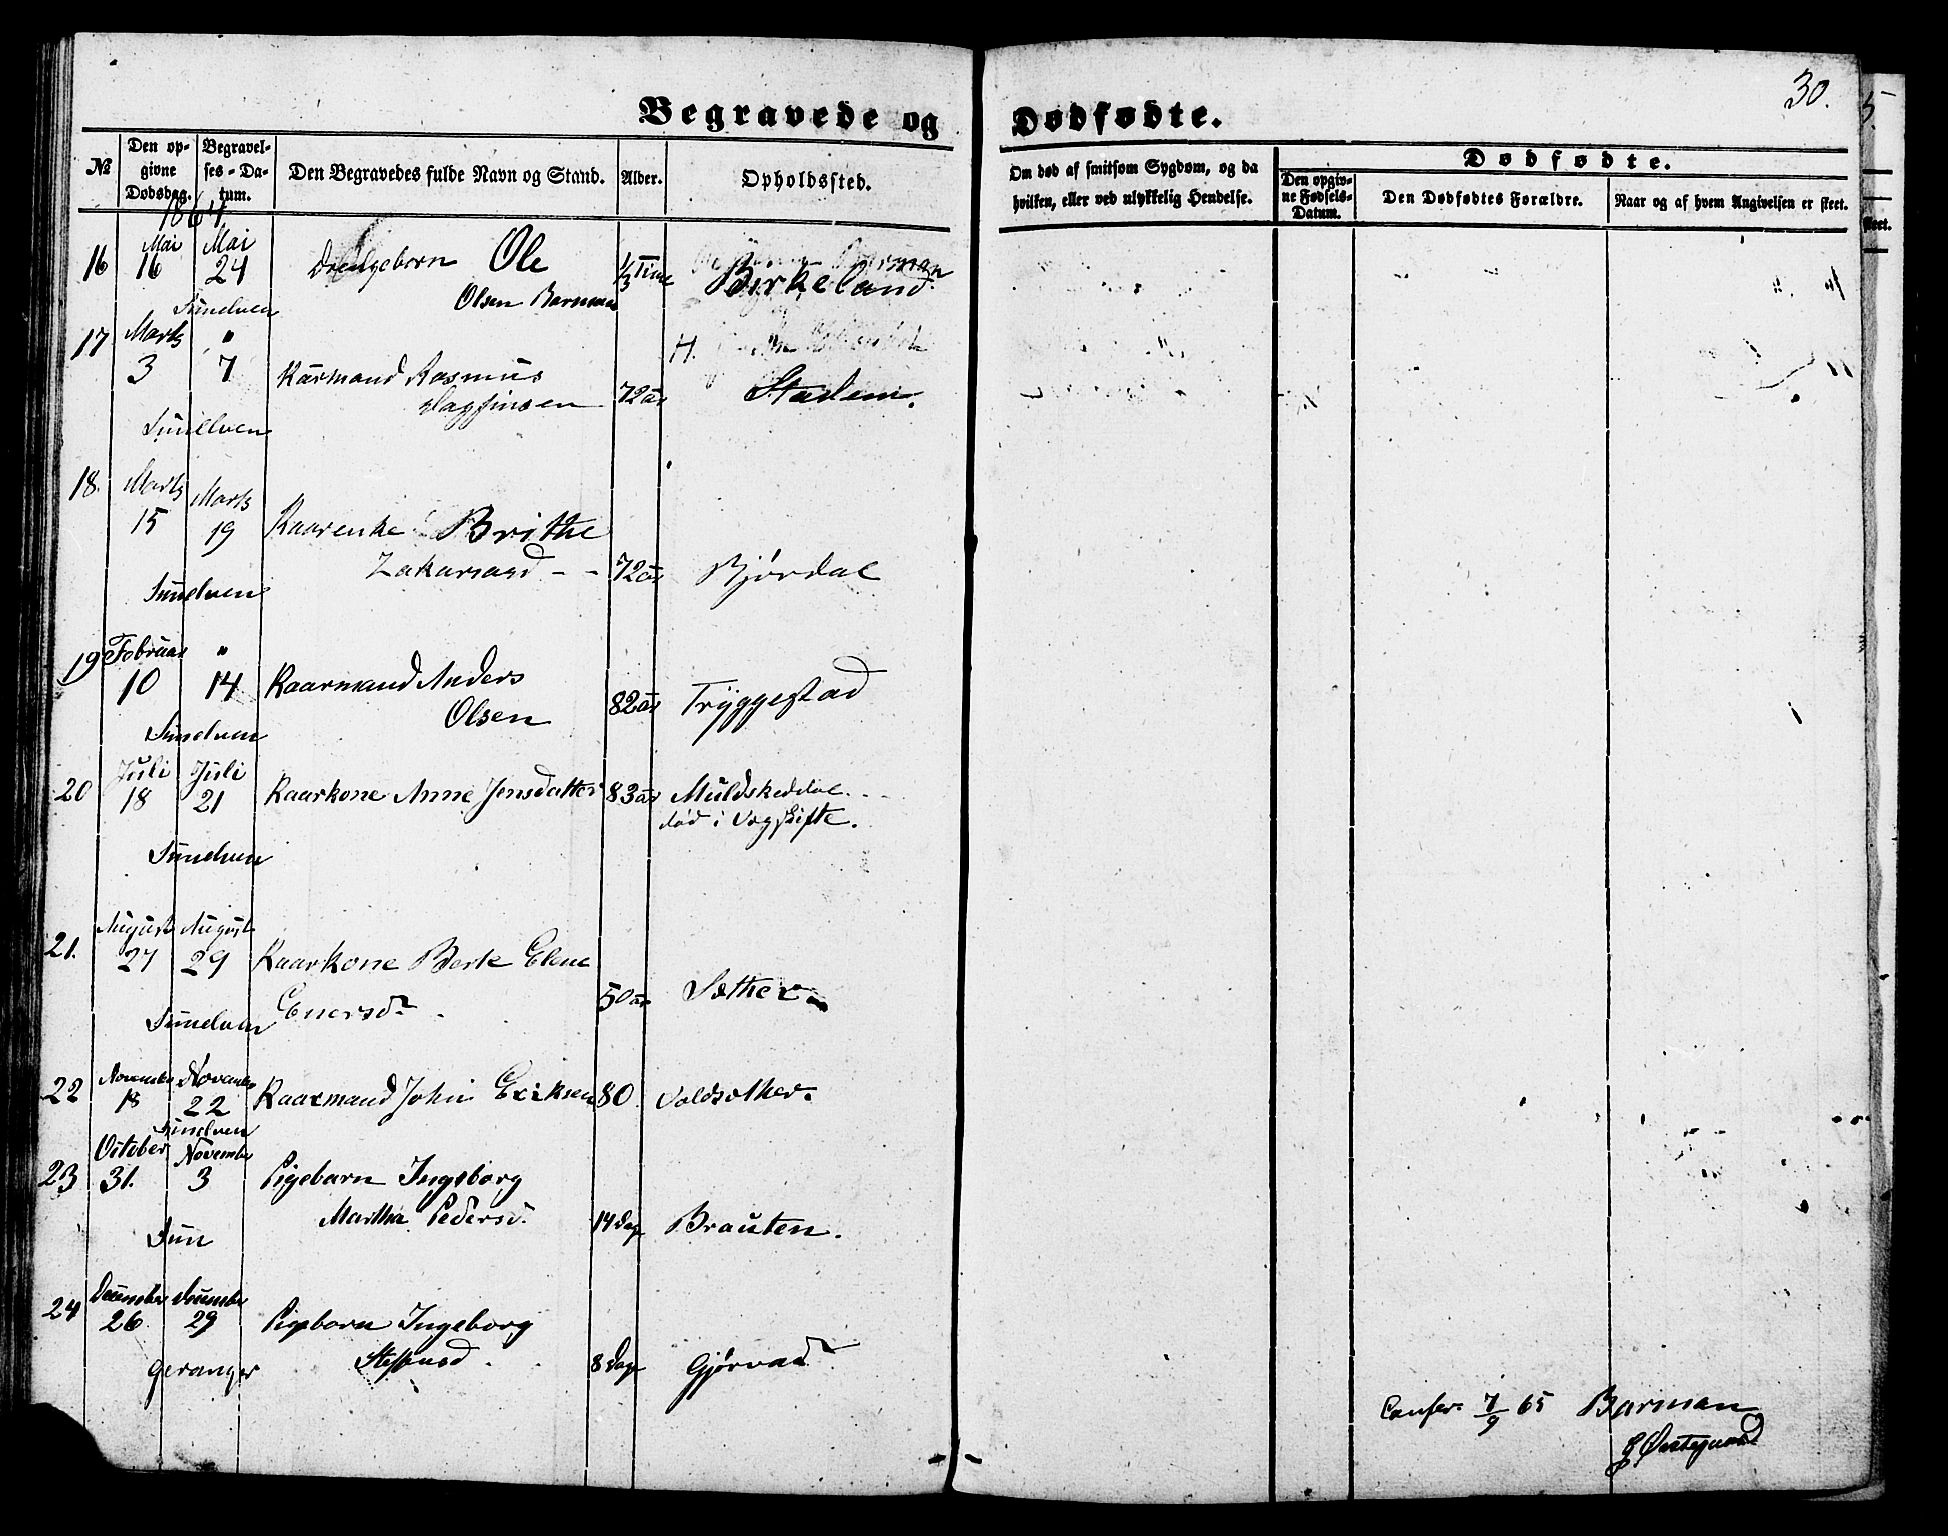 Begravede og Dødfødte.
30.
№
Den opgivne Dødsdag.
Begravelses-Datum.
Den Begravedes fulde Navn og Stand.
Alder.
Opholdssted.
Om død af smitsom Sygdom, og da hvilken, eller ved ulykkelig Hendelse.
Dødfødte.
Den opgivne Fødsels-Datum.
Den Dødfødtes Forældre.
Naar og af hvem Angivelsen er skeet.
1864.
16 Mai 16 Mai 24 Drengebarn Ole 1/3 Time Birkeland.
Sunelven Olsen Barmman
17 Marts 3 " 7 Kårmand Rasmus
Dagfinsen 72 år Stadem.
Sunelven
18. Marts 15 Marts 19 Kaarenke Brithe
Zakariasd - - 72 år Bjørdal
Sunelven
19 Februar 10 " 14 Kaarmand Anders
Olsen 82 år Tryggestad
Sunelven
20 Juli 18 Juli 21 Kaarkone Anne Jensdatter 83 år Muldskeddal.
død i
Sunelven
21. August 27 August 29 Kaarkone Berte Elene
Enersd. 50 år Sæther
Sunelven
22 November 18 November 22 Kaarmand John Eriksen 80 Voldsæther.
Sunelven
23 October 31. November 3 Pigebarn Ingeborg
Martha Pedersd. 14 Dag Brauten.
Sun
24 December 26 December 29 Pigebarn Ingeborg
Steffensd. 8 Dage Gjørvad
Geranger
Confer. 7/9 65 Barman